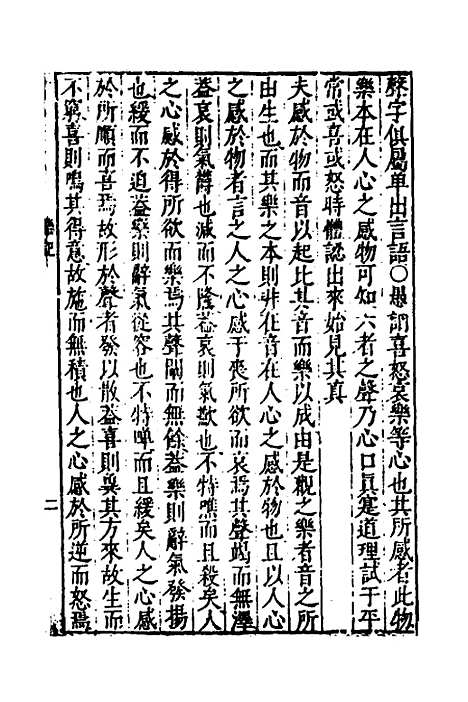 聲字俱屬單出言語○愚謂喜怒哀樂等心也其所感者此物
樂本在人心之感物可知六者之聲乃心口眞寔道理試于平
常或喜或怒時體認出來始見其真
夫感於物而音以起比其音而樂以成由是觀之樂者音之所
由生也而其樂之本則非在音在人心之感於物也且以人心
之感於物者言之人之心感于喪所欲而哀焉其聲竭而無澤
蓋哀則氣鬱也減而不隆蓋哀則氣歉也不特噍而且殺矣人
之心感於得所欲而樂焉其聲闡而無餘蓋樂則辭氣發揚
也緩而不迫蓋樂則辭氣從容也不特嘽而且緩矣人之心感
於所順而喜焉故形於聲者發以散蓋喜則與其方來故生而
不窮喜則鳴其得意故施而無積也人之心感於所逆而怒焉
樂記
二